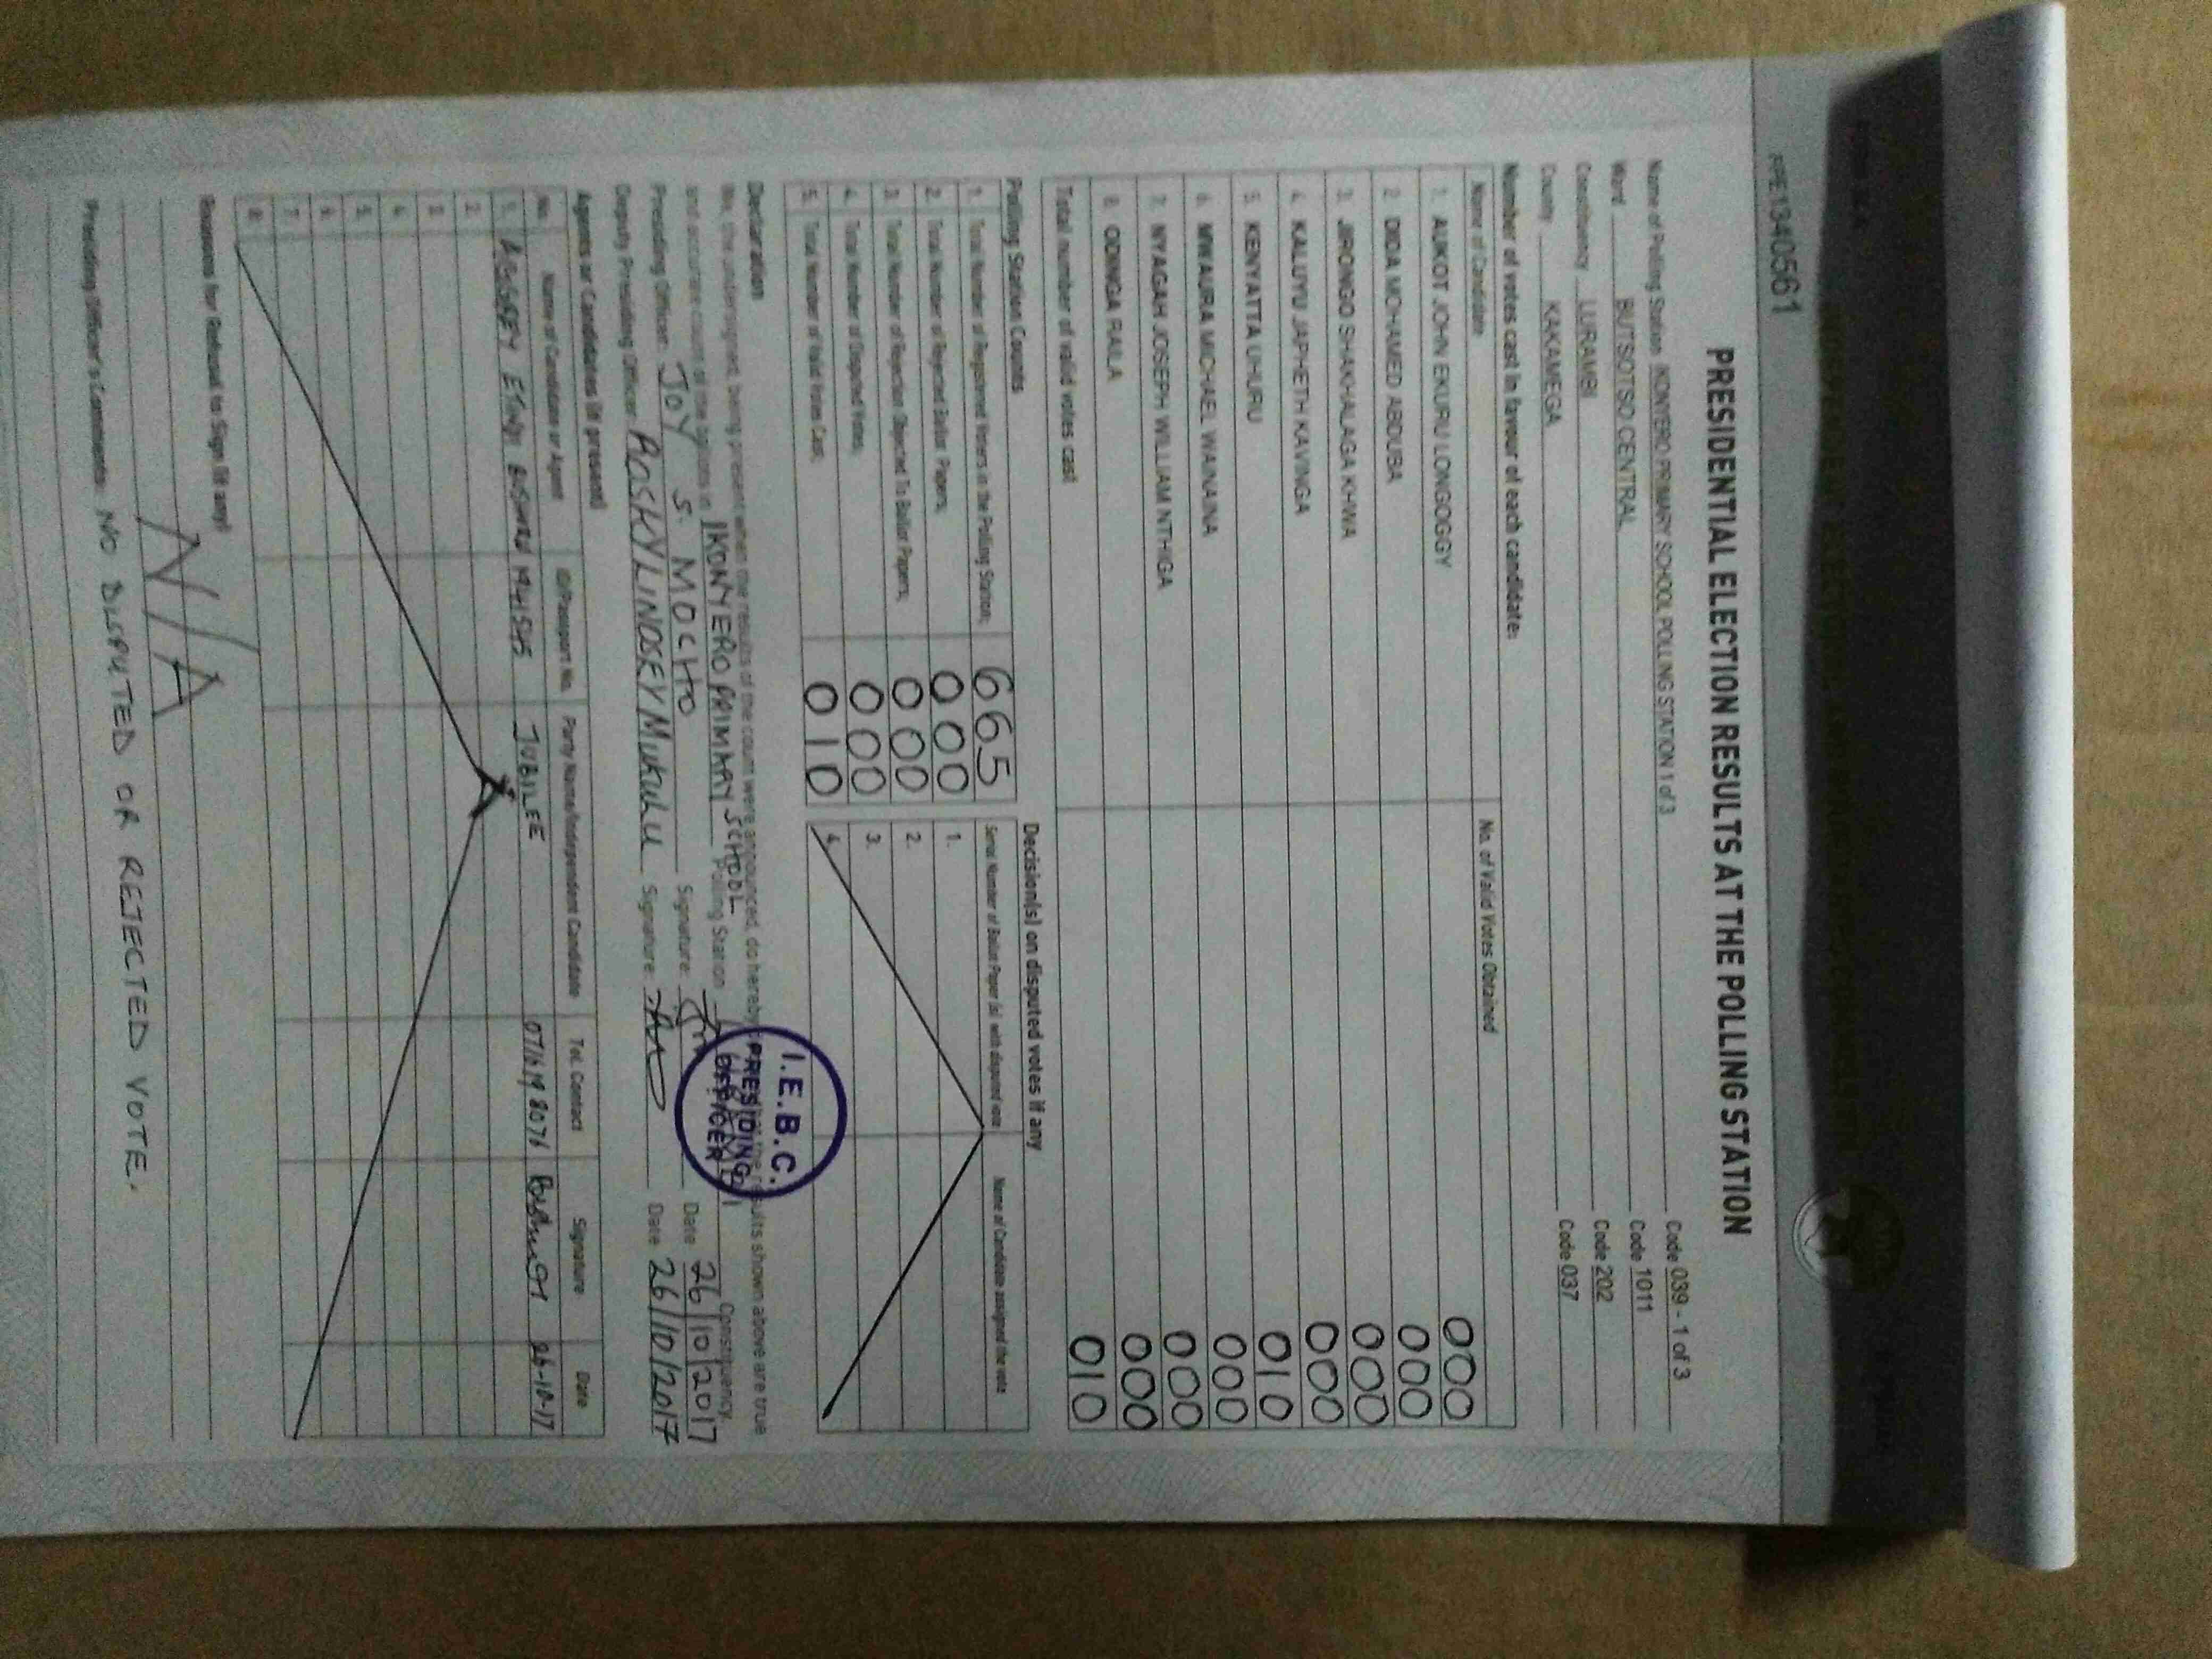 PPE1340561
PRESIDENTIAL ELECTION RESULTS AT THE POLLING STATION
Name of Polling Station IKONYERO PRIMARY SCHOOL POLLING STATION 1 of 3 Code 039 - 1 of 3
Ward BUTSOTSO CENTRAL Code 1011
Constituency LURAMBI Code 202
County KAKAMEGA Code 037
Number of votes cast in favour of each candidate:
Name of Candidate No. of Valid Votes Obtained
1. AUKOT JOHN EKURU LONGOGGY 000
2. DIDA MOHAMED ABDUBA 000
3. JIRONGO SHAKHALAGA KHWA 000
4. KALUYU JAPHETH KAVINGA 000
5. KENYATTA UHURU 010
6. MWAURA MICHAEL WAINAINA 000
7. NYAGAH JOSEPH WILLIAM NTHIGA 000
8. ODINGA RAILA 000
Total number of valid votes cast 010
Polling Station Counts
1. Total Number of Registered Voters in the Polling Station; 665
2. Total Number of Rejected Ballot Papers; 000
3. Total Number of Rejection Objected To Ballot Papers; 000
4. Total Number of Disputed Votes; 000
5. Total Number of Valid Votes Cast; 010
Decision(s) on disputed votes if any
Serial Number of Ballot Paper (s) with disputed vote Name of Candidate assigned the vote
1.
2.
3.
4.
Declaration
We, the undersigned, being present when the results of the count were announced, do hereby the results shown above are true
and accurate count of the ballots in IKONYERO PRIMARY SCHOOL Polling Station Constituency.
Presiding Officer: JOY S. MOCHO Signature: Date 26/10/2017
Deputy Presiding Officer: ROSKYLINDSEY Mukuhu Signature: Date 26/10/2017
I.E.B.C.
PRESIDING
OFFICER
Agents or Candidates (if present)
No. Name of Candidate or Agent ID/Passport No. Party Name/Independent Candidate Tel. Contact Signature Date
1. JUBILEE 26-10-17
2.
3.
4.
5.
6.
7.
8.
Reasons for Refusal to Sign (if any)
N/A
Presiding Officer's Comments: NO DISPUTED OR REJECTED VOTE.